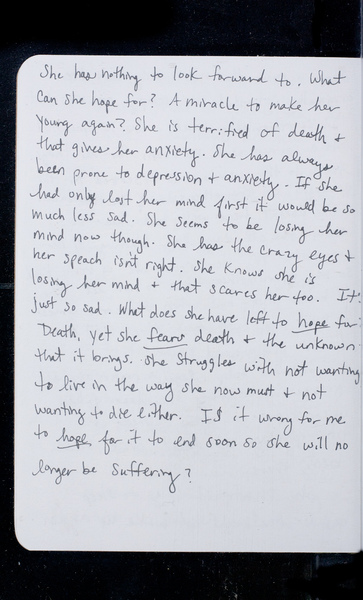 She has nothing to look forward to. What
can she hope for? A miracle to make her
young again? She is terrified of death &
that gives her anxiety. She has always
been prone to depression & anxiety. If she
had only lost her mind first it would be so
much less sad. She seems to be losing her
mind now though. She has the crazy eyes &
her speach isn't right. She knows she is
losing her mind & that scares her too. It's
just so sad. What does she have left to hope for
Death, yet she fears death & the unknown
that it brings. She struggles with not wanting
to live in the way she now must & not
wanting to die either. Is it wrong for me
to hope for it to end soon so she will no
longer be suffering?